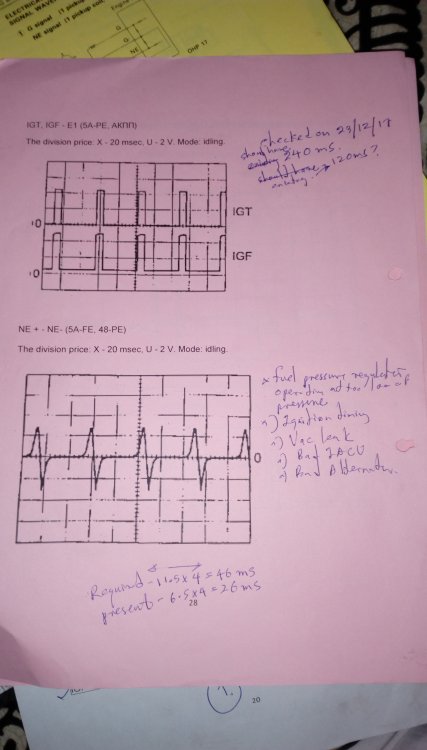 ELECTRICA
SIGNAL WAVE
1 G signal (1 pickup
NE signal (1 pickup
Engine
G
NE
OHP 17
IGT, IGF - E1 (5A-PE, АКПП)
The division price: X - 20 msec, U - 2 V. Mode: idling.
checked on 23/12/17
should have
240 ms.
should have 120ms?
IGT
0
IGF
0
NE + - NE- (5A-FE, 48-PE)
The division price: X - 20 msec, U - 2 V. Mode: idling.
0
x fuel pressure regulator
operating at too low
pressure
Ignition timing
Vac leak
Bad IACV
Bad Alternator.
Required - 11.5 x 4 = 46 ms
present - 6.5 x 4 = 26 ms
28
1.
20